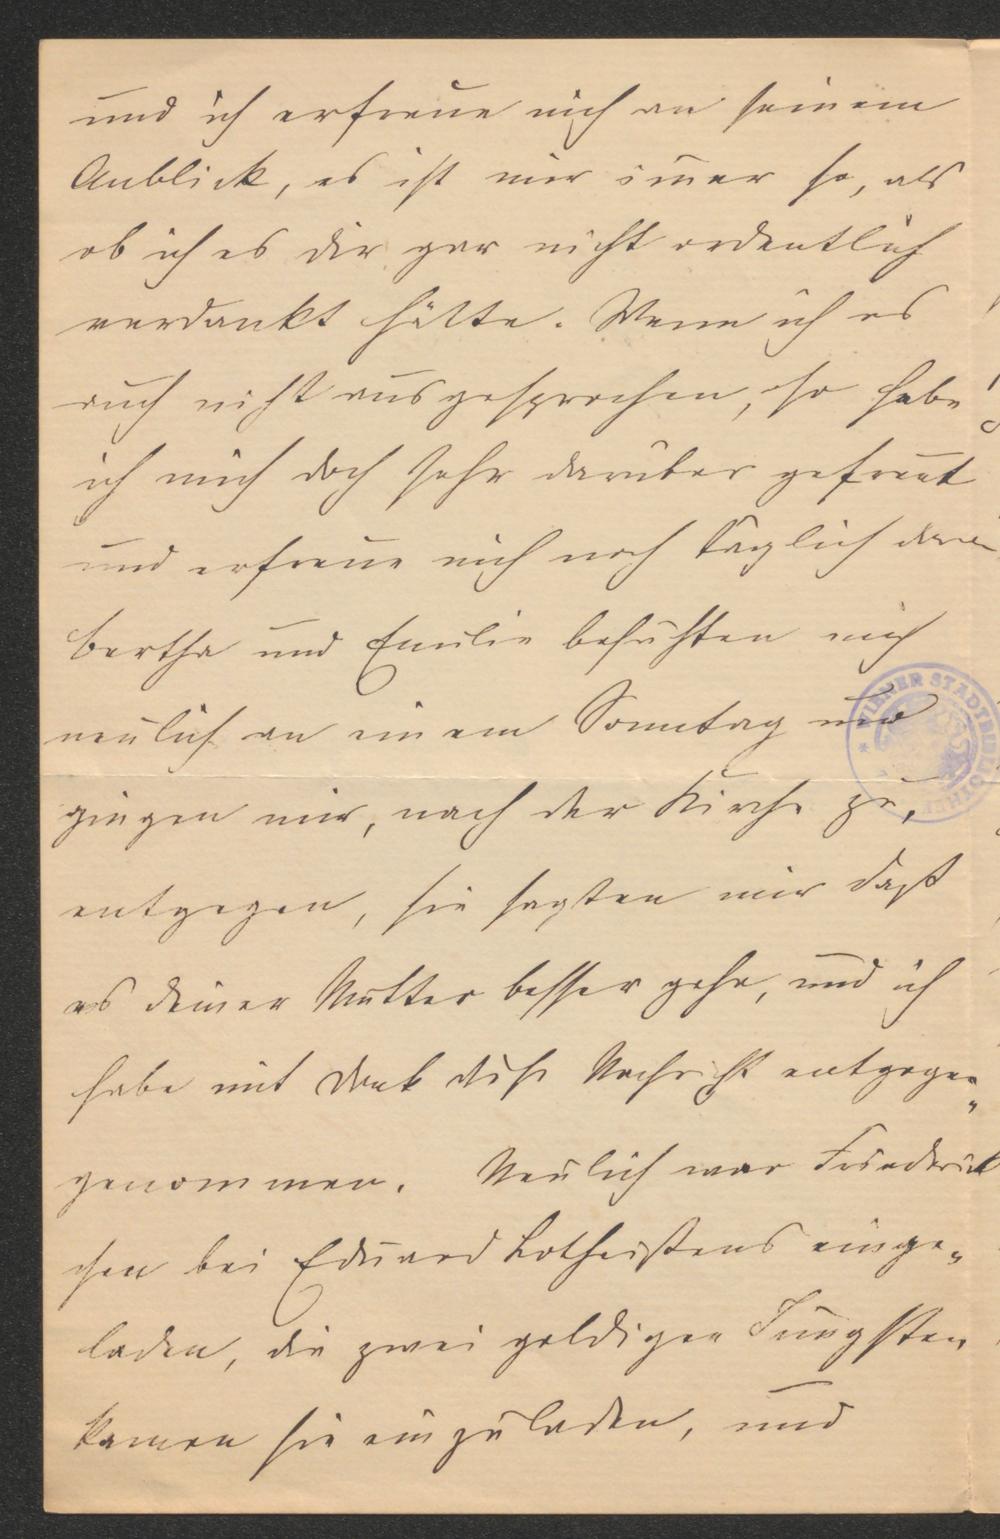 und ich erfreue mich an seinem
Anblick, es ist mir im̅er so, als
ob ich es dir gar nicht ordentlich
verdankt hätte. Wenn ich es
auch nicht ausgesprochen, so habe
ich mich doch sehr darüber gefreut
und erfreue mich noch täglich daran
Bertha und Emilie besuchten mich
neulich an einem Sonntag und
gingen mir, nach der Kirche zu,
entgegen, sie sagten mir daß
es deiner Mutter besser gehe, und ich
habe mit Dank diese Nachricht entgegen„
genommen. Neulich war Friederik
chen bei Eduard Lotheißens einge„
laden, die zwei goldigen Jüngsten
kamen sie einzuladen, und
WIENER STADTBIBLIOTHEK